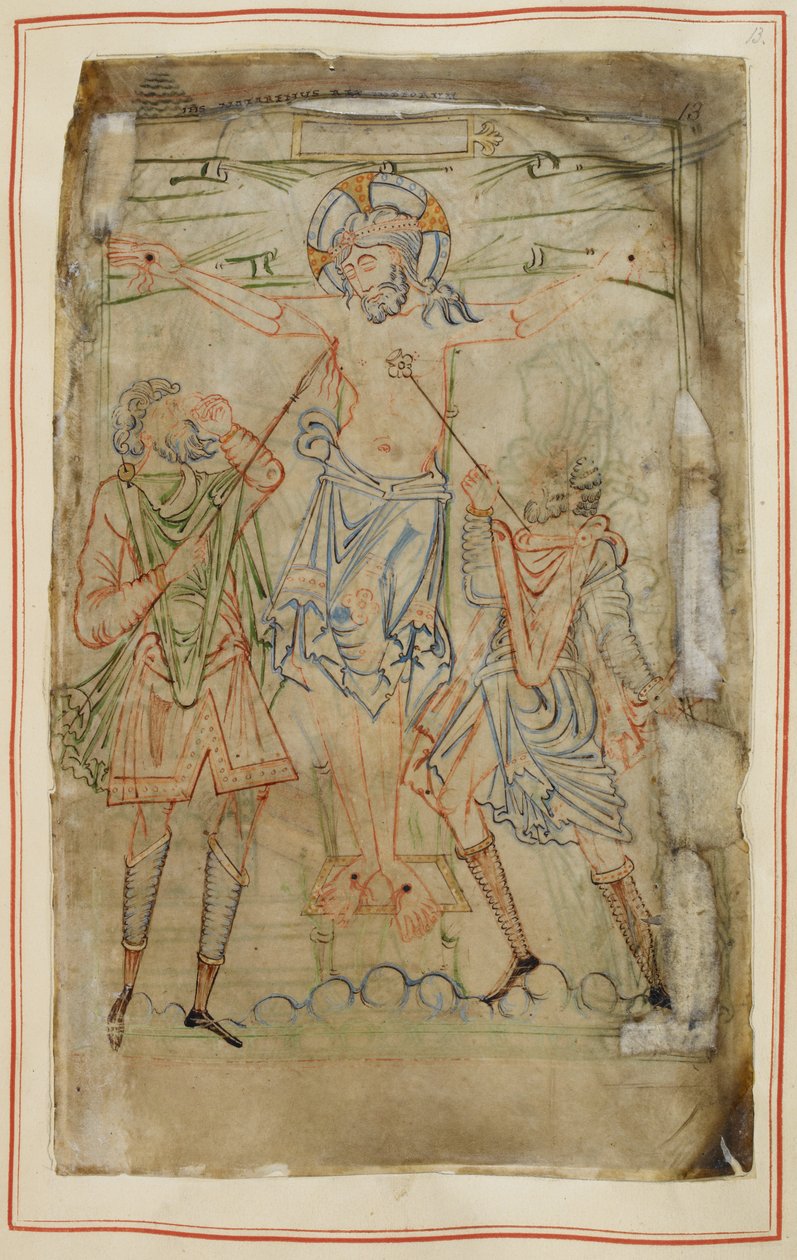 13.
IHS NAZARENUS REX IUDEORUM
13